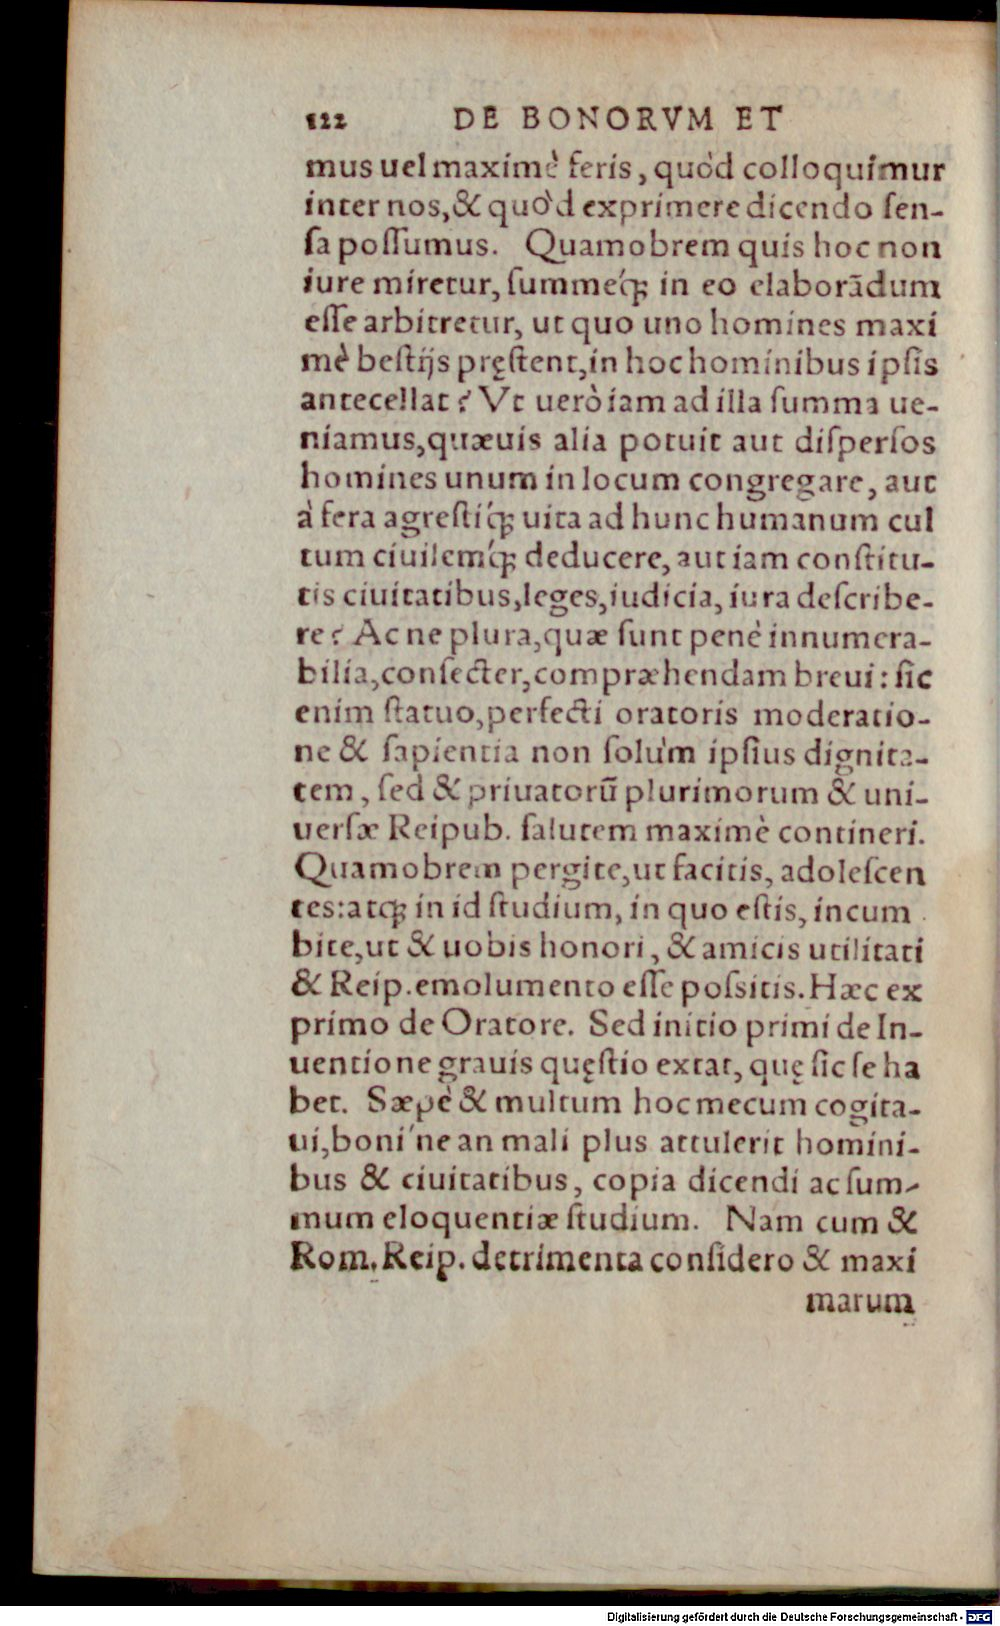 122 DE BONORVM ET
mus uel maximè feris, quòd colloquimur
inter nos, & quòd exprimere dicendo sen-
sa possumus. Quamobrem quis hoc non
iure miretur, summeq́; in eo elaborādum
esse arbitretur, ut quo uno homines maxi
mè bestijs pręstent, in hoc hominibus ipsis
antecellat? Vt uerò iam ad illa summa ue-
niamus, quæuis alia potuit aut dispersos
homines unum in locum congregare, aut
à fera agrestiq́; uita ad hunc humanum cul
tum ciuilemq́; deducere, aut iam constitu-
tis ciuitatibus, leges, iudicia, iura describe-
re? Ac ne plura, quæ sunt penè innumera-
bilia, consecter, compræhendam breui: sic
enim statuo, perfecti oratoris moderatio-
ne & sapientia non solùm ipsius dignita-
tem, sed & priuatorū plurimorum & uni-
uersæ Reipub. salutem maximè contineri.
Quamobrem pergite, ut facitis, adolescen
tes: atq; in id studium, in quo estis, incum
bite, ut & uobis honori, & amicis utilitati
& Reip. emolumento esse possitis. Hæc ex
primo de Oratore. Sed initio primi de In-
uentione grauis quęstio extat, quę sic se ha
bet. Sæpè & multum hoc mecum cogita-
ui, boni'ne an mali plus attulerit homini-
bus & ciuitatibus, copia dicendi ac sum-
mum eloquentiæ studium. Nam cum &
Rom. Reip. detrimenta considero & maxi
marum
Digitalisierung gefördert durch die Deutsche Forschungsgemeinschaft - DFG